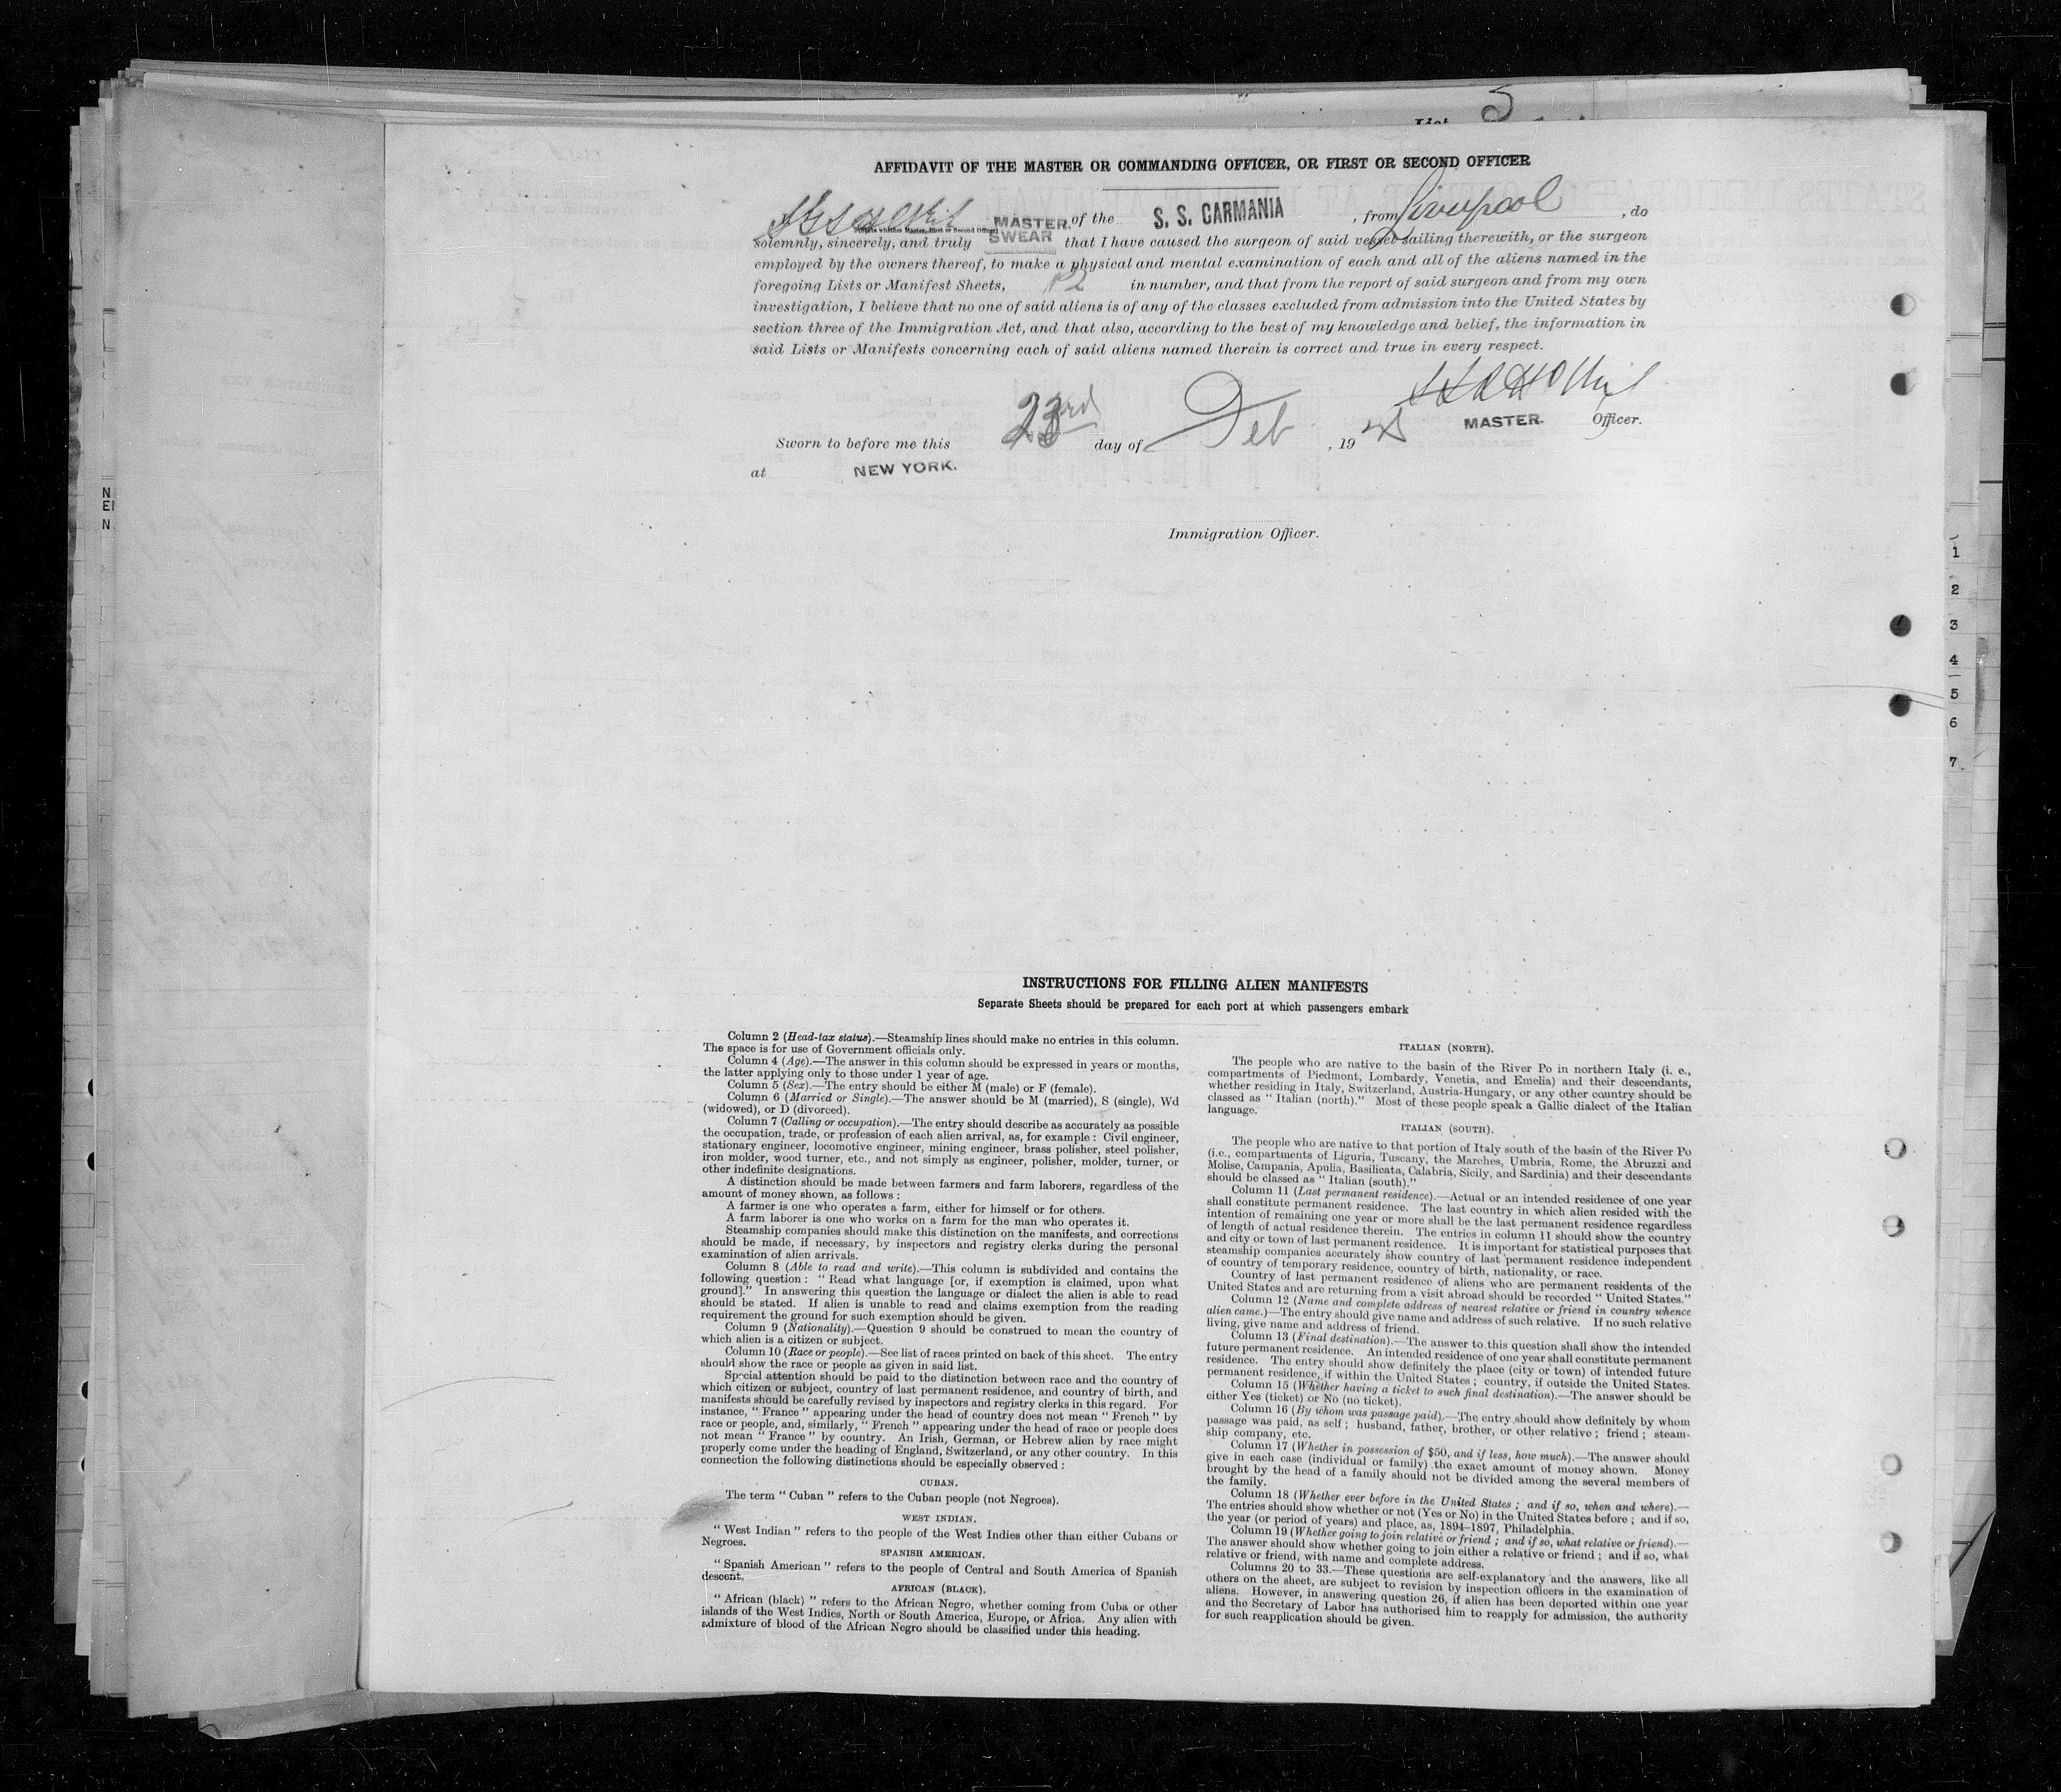 List 3
AFFIDAVIT OF THE MASTER OR COMMANDING OFFICER, OR FIRST OR SECOND OFFICER
MASTER. of the S. S. CARMANIA, from Liverpool, do
(State whether Master, First or Second Officer)
solemnly, sincerely, and truly SWEAR that I have caused the surgeon of said vessel sailing therewith, or the surgeon
employed by the owners thereof, to make a physical and mental examination of each and all of the aliens named in the
foregoing Lists or Manifest Sheets, 12 in number, and that from the report of said surgeon and from my own
investigation, I believe that no one of said aliens is of any of the classes excluded from admission into the United States by
section three of the Immigration Act, and that also, according to the best of my knowledge and belief, the information in
said Lists or Manifests concerning each of said aliens named therein is correct and true in every respect.
MASTER. Officer.
Sworn to before me this 23rd day of Feb, 19
at NEW YORK.
Immigration Officer.
N
N
1
2
3
4
5
6
7
INSTRUCTIONS FOR FILLING ALIEN MANIFESTS
Separate Sheets should be prepared for each port at which passengers embark
Column 2 (Head-tax status).—Steamship lines should make no entries in this column.
The space is for use of Government officials only.
Column 4 (Age).—The answer in this column should be expressed in years or months,
the latter applying only to those under 1 year of age.
Column 5 (Sex).—The entry should be either M (male) or F (female).
Column 6 (Married or Single).—The answer should be M (married), S (single), Wd
(widowed), or D (divorced).
Column 7 (Calling or occupation).—The entry should describe as accurately as possible
the occupation, trade, or profession of each alien arrival, as, for example : Civil engineer,
stationary engineer, locomotive engineer, mining engineer, brass polisher, steel polisher,
iron molder, wood turner, etc., and not simply as engineer, polisher, molder, turner, or
other indefinite designations.
A distinction should be made between farmers and farm laborers, regardless of the
amount of money shown, as follows :
A farmer is one who operates a farm, either for himself or for others.
A farm laborer is one who works on a farm for the man who operates it.
Steamship companies should make this distinction on the manifests, and corrections
should be made, if necessary, by inspectors and registry clerks during the personal
examination of alien arrivals.
Column 8 (Able to read and write).—This column is subdivided and contains the
following question : “ Read what language [or, if exemption is claimed, upon what
ground].” In answering this question the language or dialect the alien is able to read
should be stated. If alien is unable to read and claims exemption from the reading
requirement the ground for such exemption should be given.
Column 9 (Nationality).—Question 9 should be construed to mean the country of
which alien is a citizen or subject.
Column 10 (Race or people).—See list of races printed on back of this sheet. The entry
should show the race or people as given in said list.
Special attention should be paid to the distinction between race and the country of
which citizen or subject, country of last permanent residence, and country of birth, and
manifests should be carefully revised by inspectors and registry clerks in this regard. For
instance, “ France ” appearing under the head of country does not mean “ French ” by
race or people, and, similarly, “ French ” appearing under the head of race or people does
not mean “ France ” by country. An Irish, German, or Hebrew alien by race might
properly come under the heading of England, Switzerland, or any other country. In this
connection the following distinctions should be especially observed :
CUBAN.
The term “ Cuban ” refers to the Cuban people (not Negroes).
WEST INDIAN.
“ West Indian ” refers to the people of the West Indies other than either Cubans or
Negroes.
SPANISH AMERICAN.
“ Spanish American ” refers to the people of Central and South America of Spanish
descent.
AFRICAN (BLACK).
“ African (black) ” refers to the African Negro, whether coming from Cuba or other
islands of the West Indies, North or South America, Europe, or Africa. Any alien with
admixture of blood of the African Negro should be classified under this heading.
ITALIAN (NORTH).
The people who are native to the basin of the River Po in northern Italy (i. e.,
compartments of Piedmont, Lombardy, Venetia, and Emelia) and their descendants,
whether residing in Italy, Switzerland, Austria-Hungary, or any other country should be
classed as “ Italian (north).” Most of these people speak a Gallic dialect of the Italian
language.
ITALIAN (SOUTH).
The people who are native to that portion of Italy south of the basin of the River Po
(i.e., compartments of Liguria, Tuscany, the Marches, Umbria, Rome, the Abruzzi and
Molise, Campania, Apulia, Basilicata, Calabria, Sicily, and Sardinia) and their descendants
should be classed as “ Italian (south).”
Column 11 (Last permanent residence).—Actual or an intended residence of one year
shall constitute permanent residence. The last country in which alien resided with the
intention of remaining one year or more shall be the last permanent residence regardless
of length of actual residence therein. The entries in column 11 should show the country
and city or town of last permanent residence. It is important for statistical purposes that
steamship companies accurately show country of last permanent residence independent
of country of temporary residence, country of birth, nationality, or race.
Country of last permanent residence of aliens who are permanent residents of the
United States and are returning from a visit abroad should be recorded “ United States.”
Column 12 (Name and complete address of nearest relative or friend in country whence
alien came.)—The entry should give name and address of such relative. If no such relative
living, give name and address of friend.
Column 13 (Final destination).—The answer to this question shall show the intended
future permanent residence. An intended residence of one year shall constitute permanent
residence. The entry should show definitely the place (city or town) of intended future
permanent residence, if within the United States ; country, if outside the United States.
Column 15 (Whether having a ticket to such final destination).—The answer should be
either Yes (ticket) or No (no ticket).
Column 16 (By whom was passage paid).—The entry should show definitely by whom
passage was paid, as self ; husband, father, brother, or other relative ; friend ; steam-
ship company, etc.
Column 17 (Whether in possession of $50, and if less, how much).—The answer should
give in each case (individual or family) the exact amount of money shown. Money
brought by the head of a family should not be divided among the several members of
the family.
Column 18 (Whether ever before in the United States ; and if so, when and where).—
The entries should show whether or not (Yes or No) in the United States before ; and if so,
the year (or period of years) and place, as, 1894–1897, Philadelphia.
Column 19 (Whether going to join relative or friend ; and if so, what relative or friend).—
The answer should show whether going to join either a relative or friend ; and if so, what
relative or friend, with name and complete address.
Columns 20 to 33.—These questions are self-explanatory and the answers, like all
others on the sheet, are subject to revision by inspection officers in the examination of
aliens. However, in answering question 26, if alien has been deported within one year
and the Secretary of Labor has authorised him to reapply for admission, the authority
for such reapplication should be given.